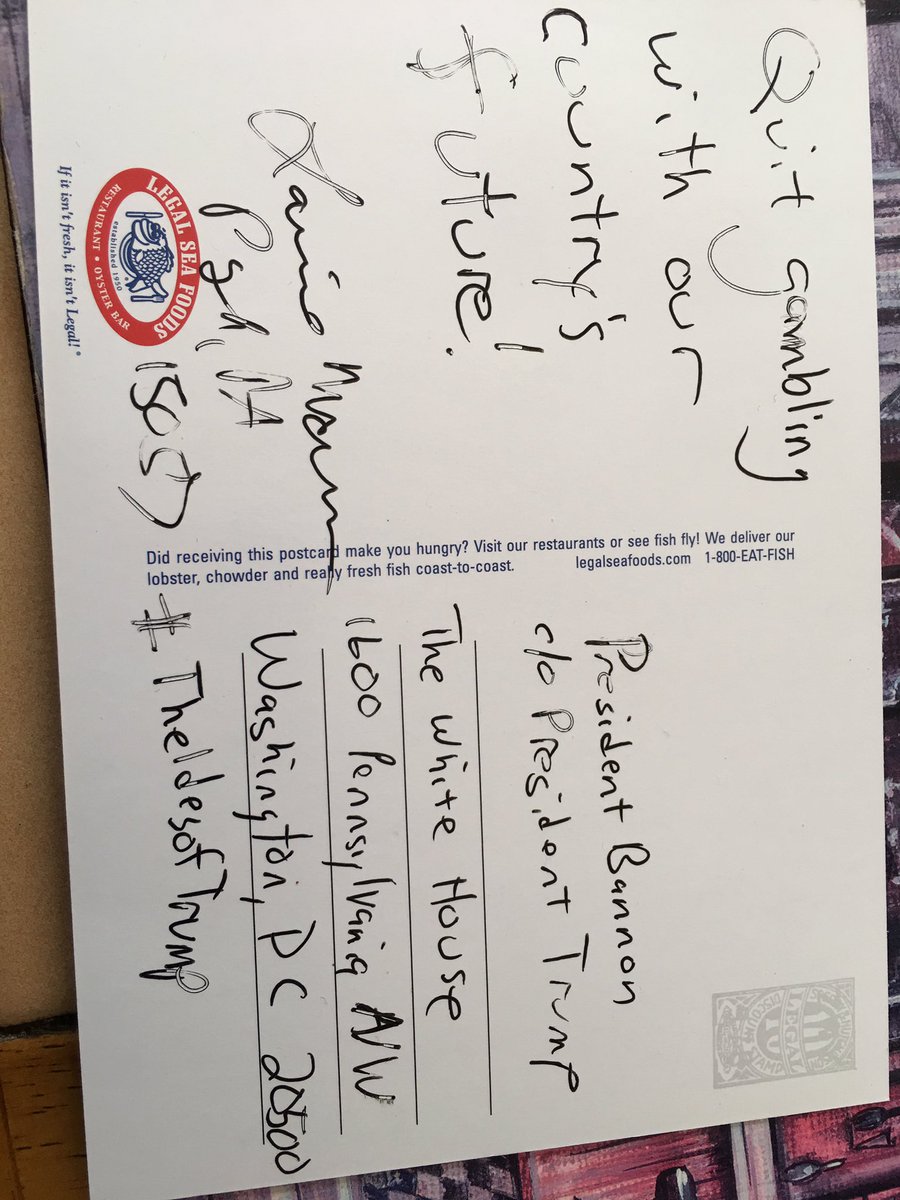 Quit gambling
with our
country's
future!
Pgh, PA
15057
LEGAL SEA FOODS
RESTAURANT • OYSTER BAR
established 1950
If it isn't fresh, it isn't Legal!®
Did receiving this postcard make you hungry? Visit our restaurants or see fish fly! We deliver our
lobster, chowder and really fresh fish coast-to-coast. legalseafoods.com 1-800-EAT-FISH
President Bannon
c/o President Trump
The White House
1600 Pennsylvania NW
Washington, DC 20500
#TheIdesofTrump
LEGAL